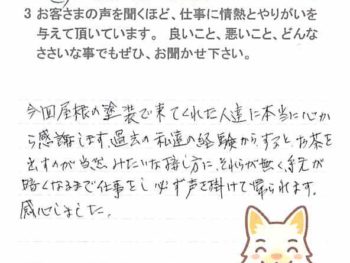 3 お客さまの声を聞くほど、仕事に情熱とやりがいを
与えて頂いています。 良いこと、悪いこと、どんな
ささいな事でもぜひ、お聞かせ下さい。
今回屋根の塗装で来てくれた人達に本当に心か
ら感謝します。過去の私達の経験からすると、お茶を
出すのが当然みたいな接し方に、それらが無く、
暗くなるまで仕事をし必ず声を掛けて帰られます。
感心しました。